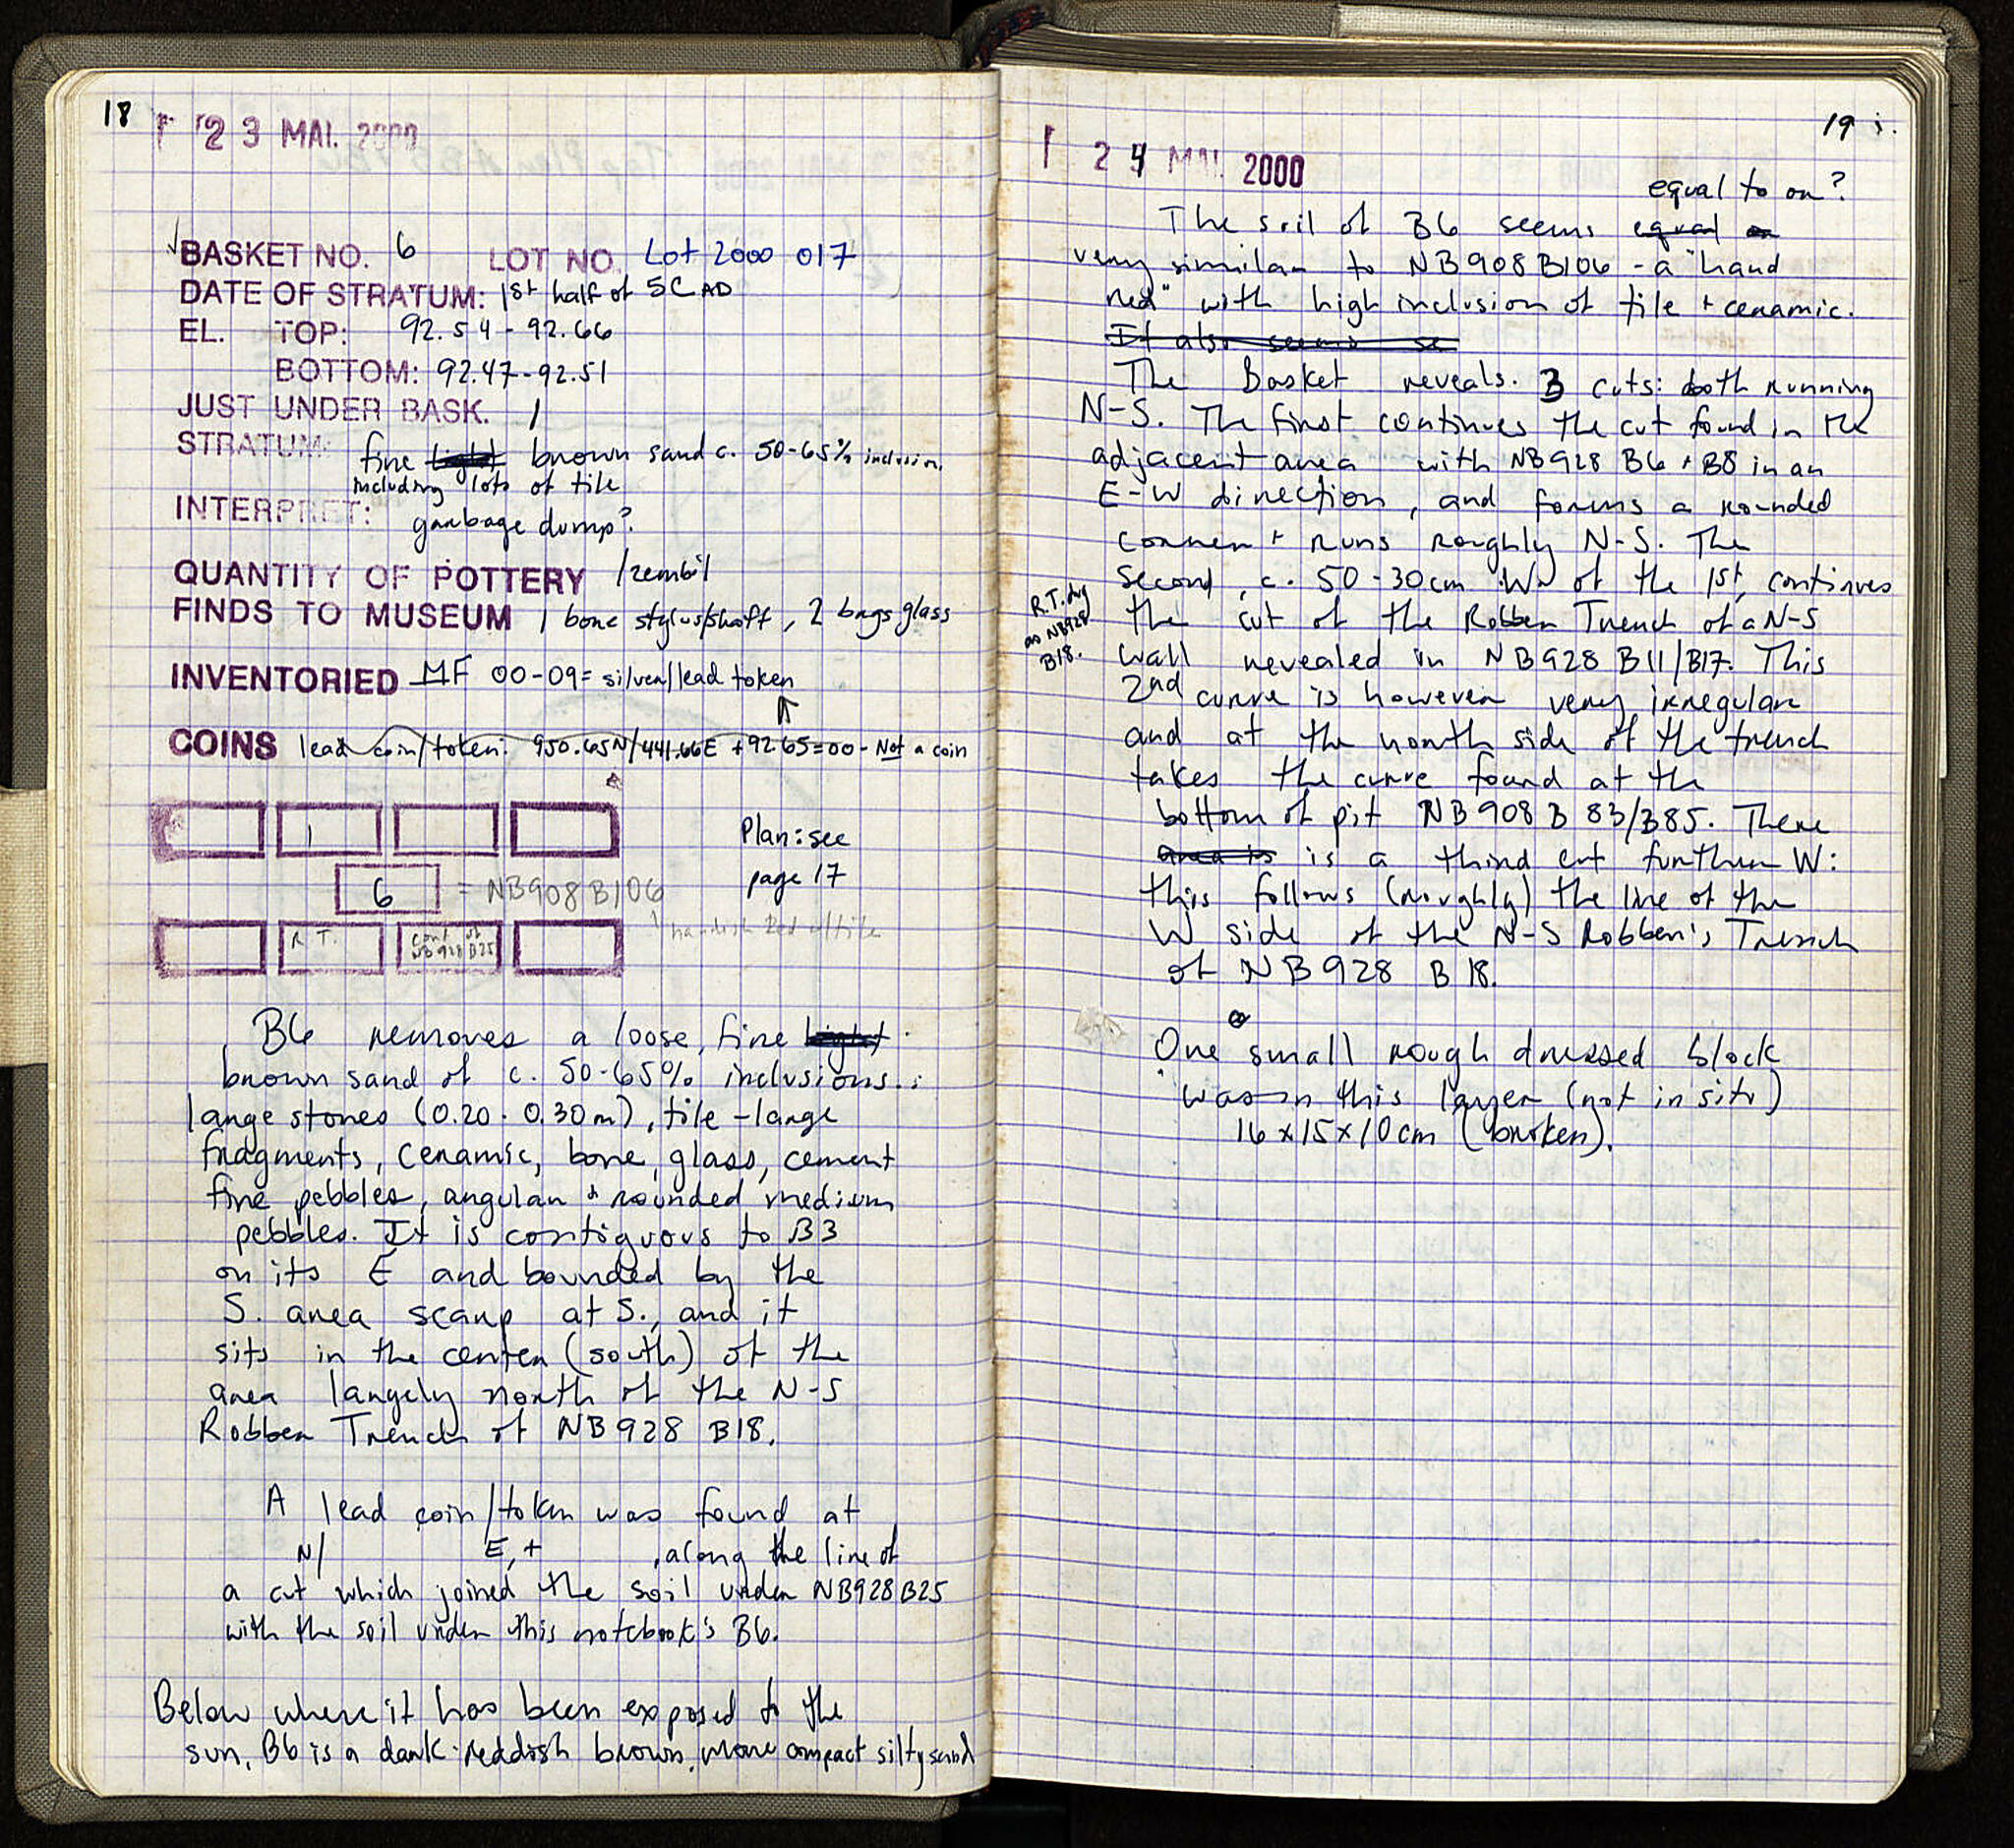 18
23 MAI. 2000
BASKET NO. 6 LOT NO. Lot 2000 017
DATE OF STRATUM: 1st half of 5C AD
EL. TOP: 92.54 - 92.66
BOTTOM: 92.47-92.51
JUST UNDER BASK. 1
STRATUM: fine light brown sand c. 50-65% inclusion,
including lots of tile
INTERPRET: garbage dump?
QUANTITY OF POTTERY 1 zembil
FINDS TO MUSEUM 1 bone stylus/shaft, 2 bags glass
INVENTORIED MF 00-09= silver/lead token
COINS lead coin/token: 950.65N/441.66E +92.65=00 - Not a coin
1
Plan: see
page 17
6 = NB908 B106
hardish red w/tile
R T. cont of
NB928 B25
B6 removes a loose, fine light
brown sand of c. 50-65% inclusions:
large stones (0.20-0.30m), tile - large
fragments, ceramic, bone, glass, cement
fine pebbles, angular + rounded medium
pebbles. It is contiguous to B3
on its E and bounded by the
S. area scarp at S., and it
sits in the center (south) of the
area largely north of the N-S
Robber Trench of NB928 B18.
A lead coin/token was found at
N/ E, + , along the line of
a cut which joined the soil under NB928 B25
with the soil under this notebook's B6.
Below where it has been exposed to the
sun, B6 is a dark reddish brown, more compact silty sand
19
24 MAI 2000
equal to on?
The soil of B6 seems equal on
very similar to NB908 B106 - a "hard
red" with high inclusion of tile + ceramic.
It also seems se
The Basket reveals 3 cuts: both running
N-S. The first continues the cut found in the
adjacent area with NB928 B6 + B8 in an
E-W direction, and forms a rounded
corner + runs roughly N-S. The
second, c. 50-30cm W of the 1st, continues
the cut of the Robber Trench of a N-S
R.T. dug
as NB928
B18.
wall revealed in NB928 B11/B17. This
2nd curve is however very irregular
and at the north side of the trench
takes the curve found at the
bottom of pit NB908 B 83/B85. There
area is is a third cut further W:
this follows (roughly) the line of the
W side of the N-S Robber's Trench
of NB928 B 18.
One small rough dressed block
was in this layer (not in situ)
16 x 15 x 10 cm (broken).